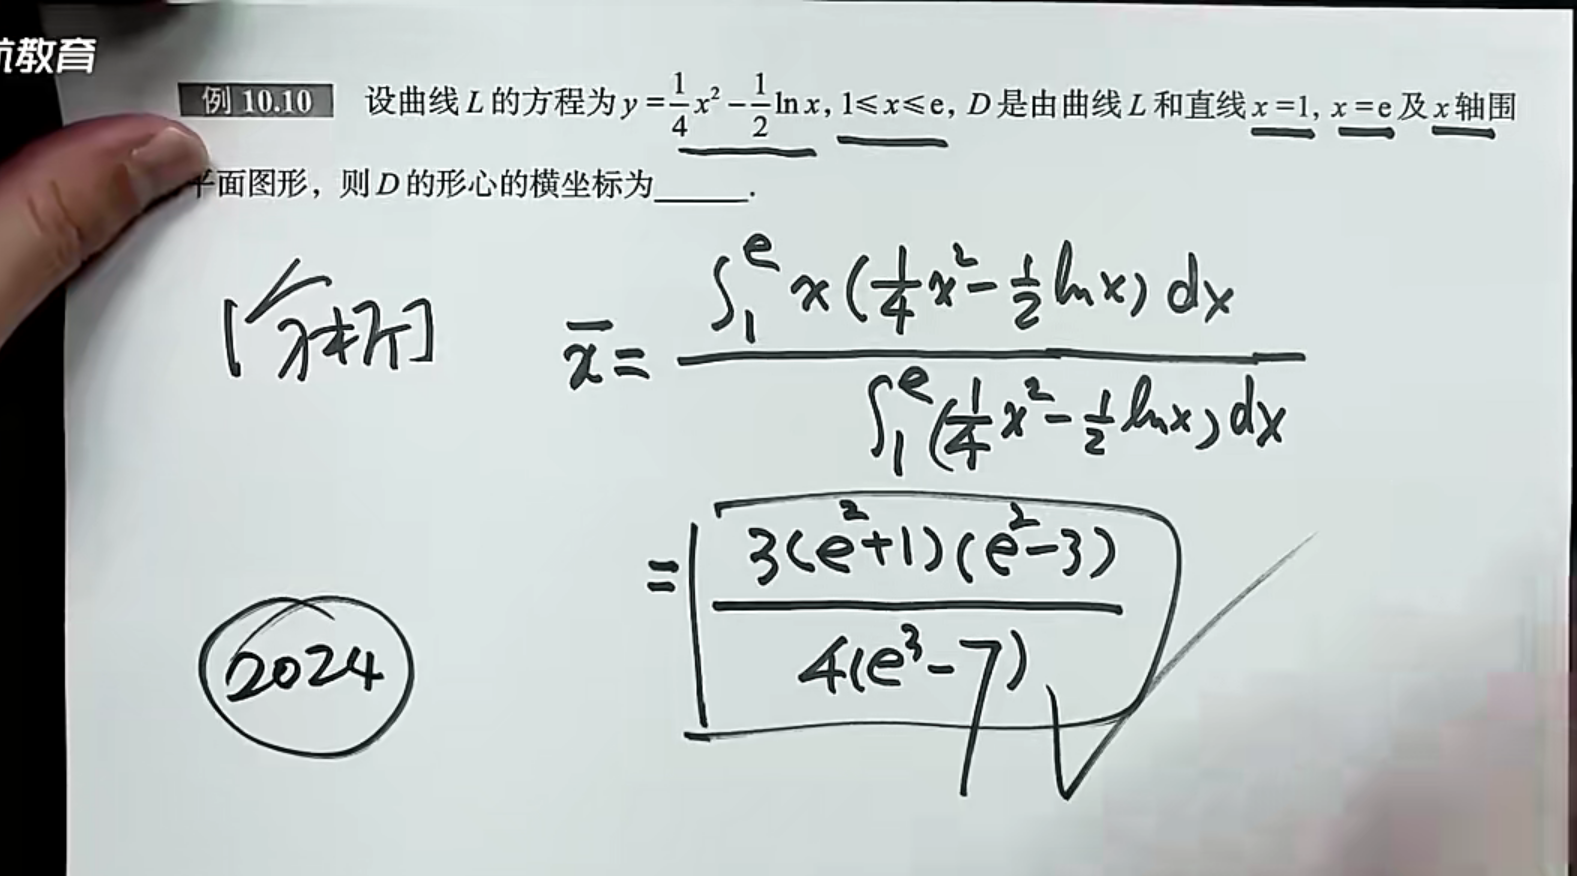 航教育
例 10.10 设曲线 L 的方程为 y = 1/4 x² - 1/2 ln x, 1 ≤ x ≤ e, D 是由曲线 L 和直线 x = 1, x = e 及 x 轴围
平面图形，则 D 的形心的横坐标为______.
[分析] x̄ = ∫₁ᵉ x(1/4 x² - 1/2 ln x) dx / ∫₁ᵉ (1/4 x² - 1/2 ln x) dx
= 3(e²+1)(e²-3) / 4(e³-7)
2024